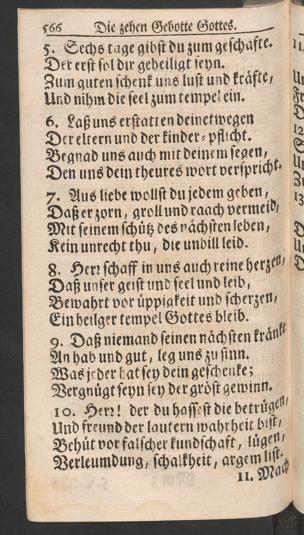 566 Die zehen Gebotte Gottes.
5. Sechs tage gibst du zum geschafte.
Der erst sol dir geheiligt seyn.
Zum guten schenk uns lust und kräfte,
Und nihm die seel zum tempel ein.
6. Laß uns erstatten deinetwegen
Der eltern und der kinder-pflicht.
Begnad uns auch mit deinem segen,
Den uns dein theures wort verspricht.
7. Aus liebe wollst du jedem geben,
Daß er zorn, groll und raach vermeid,
Mit seinem schütz des nächsten leben,
Kein unrecht thu, die unbill leid.
8. Herr schaff in uns auch reine herzen,
Daß unser geist und seel und leib,
Bewahrt vor üppigkeit und scherzen,
Ein heilger tempel Gottes bleib.
9. Daß niemand seinen nächsten kränke
An hab und gut, leg uns zu sinn.
Was jeder hat sey dein geschenke;
Vergnügt seyn sey der gröst gewinn.
10. Herr! der du hassest die betrügen,
Und freund der lautern wahrheit bist,
Behüt vor falscher kundschaft, lügen,
Verleumdung, schalkheit, argem list.
11. Mach